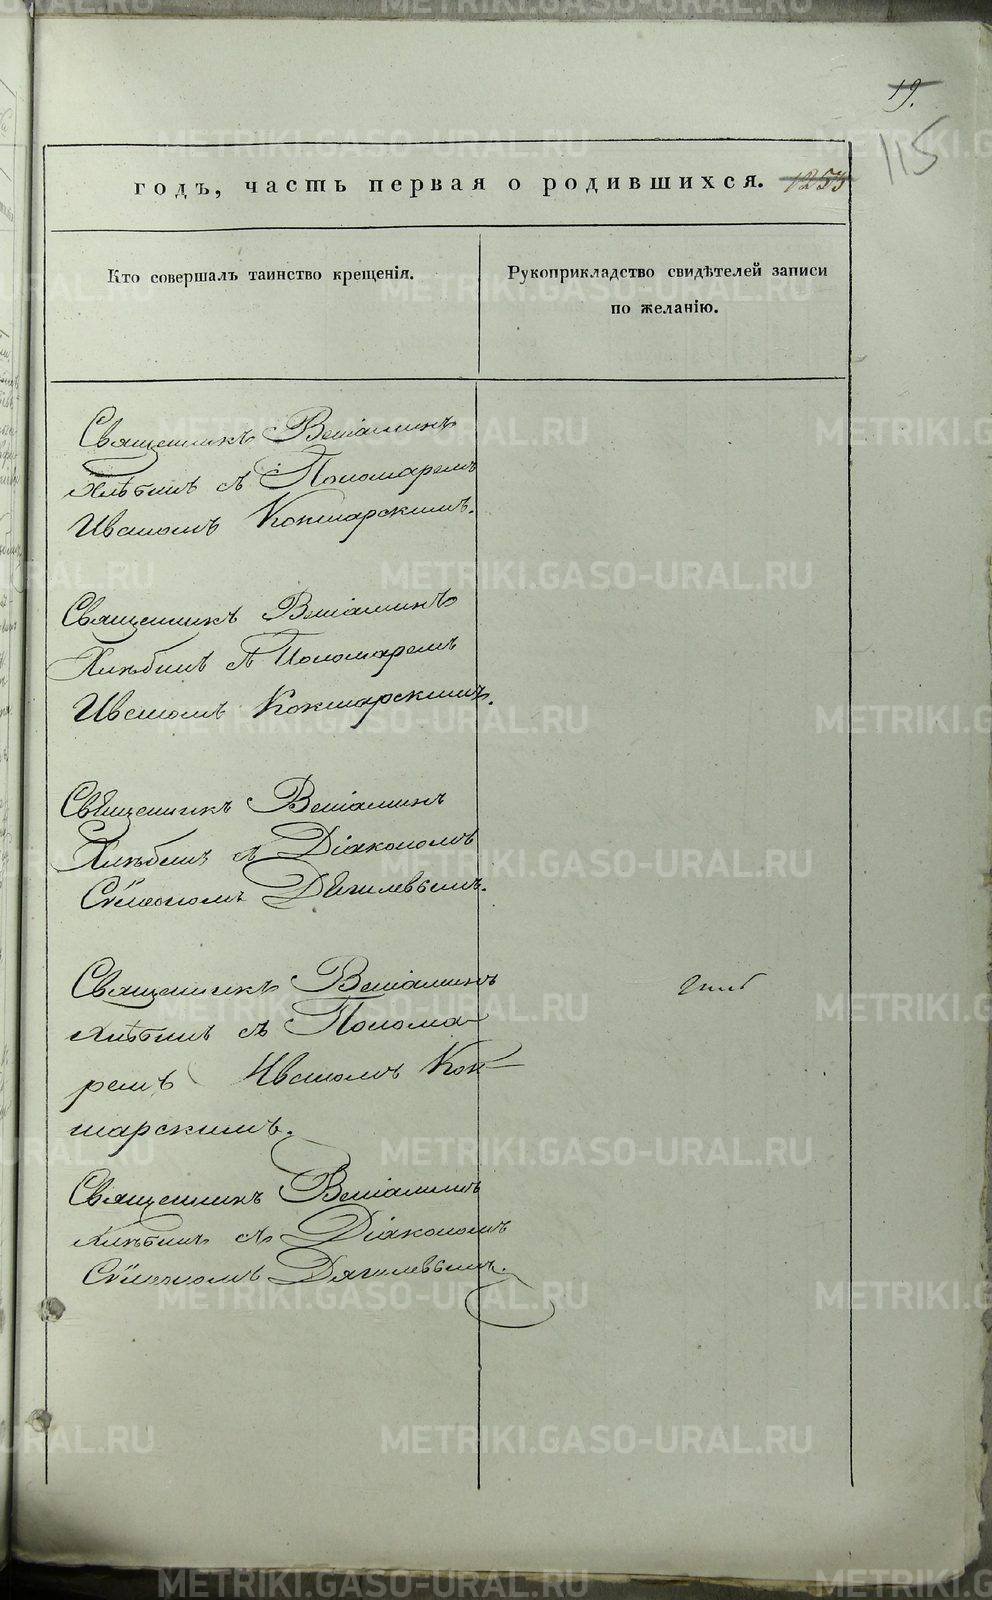 19.
115
годъ, часть первая о родившихся. 1253
Кто совершалъ таинство крещенія.
Рукоприкладство свидѣтелей записи
по желанію.
Священникъ Веніаминъ
Хлѣбинъ съ Пономаремъ
Иваномъ Кокшарскимъ.
Священникъ Веніаминъ
Хлѣбинъ съ Пономаремъ
Иваномъ Кокшарскимъ.
Священникъ Веніаминъ
Хлѣбинъ съ Діакономъ
Сѵмеономъ Дягилевымъ.
Священникъ Веніаминъ
Хлѣбинъ съ Понома-
ремъ Иваномъ Кок-
шарскимъ.
Священникъ Веніаминъ
Хлѣбинъ съ Діакономъ
Сѵмеономъ Дягилевымъ.
METRIKI.GASO-URAL.RU